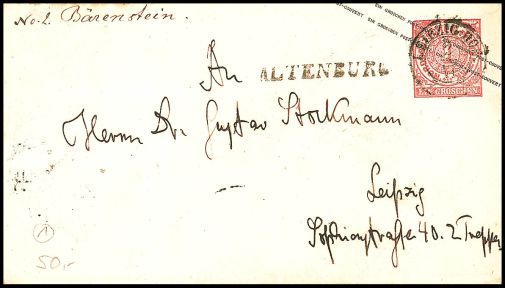 No. 2. Bärenstein.
EIN GROSCHEN
LEIPZIG
1
GROSCHEN
An
ALTENBURG
Herrn Dr. Gustav Stockmann
Leipzig
Sophienstraße 40. 2 Treppen
1
50,-